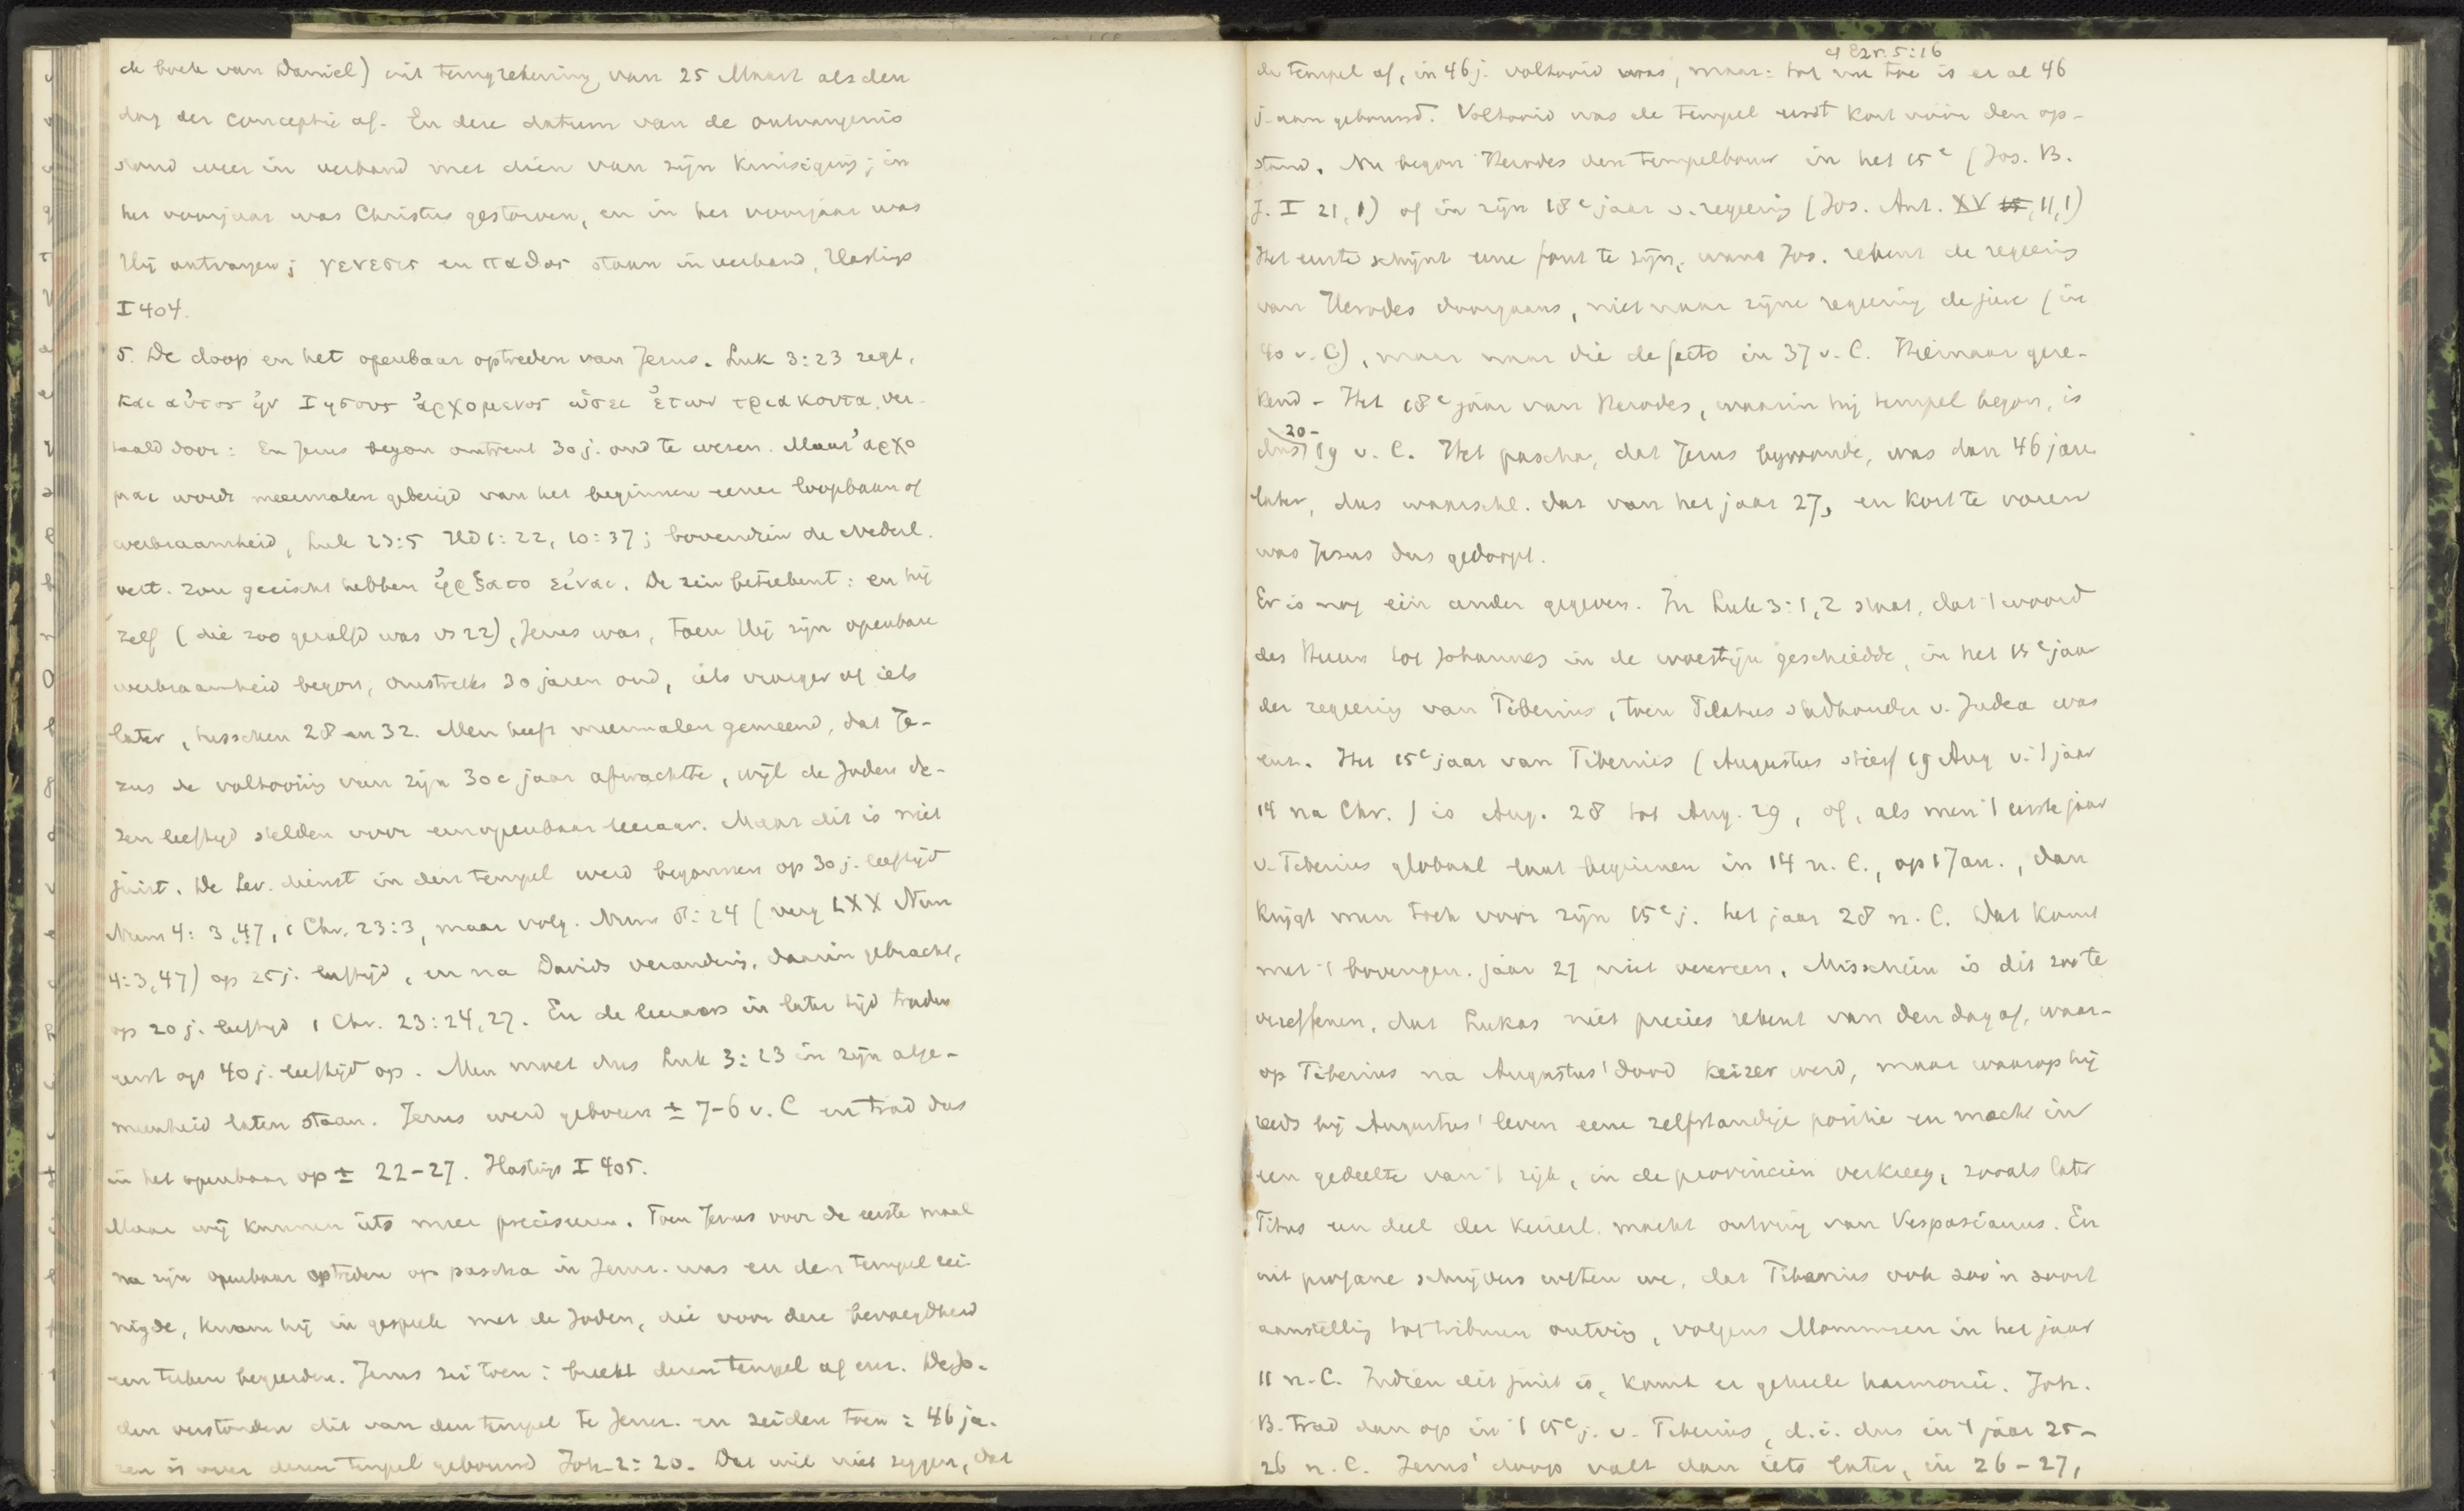 de boek van Daniel) uit terugrekening van 25 Maart als den
dag der conceptie af. En deze datum van de ontvangenis
stond weer in verband met dien van zijn kruisiging; in
het voorjaar was Christus gestorven, en in het voorjaar was
Hij ontvangen; γενεσις en παθος staan in verband, Hastings
I 404.
5. De doop en het openbaar optreden van Jezus. Luk 3:23 zegt,
και αὐτος ἠν Ιησους ἀρχομενος ὡσει ἐτων τριακοντα, ver-
taald door: En Jezus begon omtrent 30 j. oud te wezen. Maar ἀρχο
μαι wordt meermalen gebezigd van het beginnen eener loopbaan of
werkzaamheid, Luk 23:5 Hd 1:22, 10:37; bovendien de Nederl.
vert. zou geeischt hebben ἠρξατο εἰναι. De zin beteekent: en hij
zelf (die zoo gezalfd was vs 22), Jezus was, toen Hij zijn openbare
werkzaamheid begon, omstreeks 30 jaren oud, iets vroeger of iets
later, tusschen 28 en 32. Men heeft meermalen gemeend, dat Je-
zus de voltooiing van zijn 30e jaar afwachtte, wijl de Joden de-
zen leeftijd stelden voor een openbaar leeraar. Maar dit is niet
juist. De Lev. dienst in den tempel werd begonnen op 30 j. leeftijd
Num 4:3,47, 1 Chr. 23:3, maar volg. Num 8:24 (verg LXX Num
4:3,47) op 25 j. leeftijd, en na Davids verandering, daarin gebracht,
op 20 j. leeftijd 1 Chr. 23:24,27. En de leeraars in later tijd traden
eerst op 40 j. leeftijd op. Men moet dus Luk 3:23 in zijn alge-
meenheid laten staan. Jezus werd geboren ± 7-6 v. C en trad dus
in het openbaar op ± 22-27. Hastings I 405.
Maar wij kunnen iets meer preciseeren. Toen Jezus voor de eerste maal
na zijn openbaar optreden op pascha in Jeruz. was en den tempel rei-
nigde, kwam hij in gesprek met de Joden, die voor deze bevoegdheid
een teeken begeerden. Jezus zei toen: breekt dezen tempel af enz. De Jo-
den verstonden dit van den tempel te Jeruz. en zeiden toen: 46 ja-
ren is over dezen tempel gebouwd Joh. 2:20. Dat wil niet zeggen, dat
cf Ezr. 5:16
de tempel af, in 46 j. voltooid was, maar: tot nu toe is er al 46
j. aan gebouwd. Voltooid was de tempel eerst kort vóór den op-
stand. Nu begon Herodes den tempelbouw in het 15e (Jos. B.
J. I 21,1) of in zijn 18e jaar v. regeering (Jos. Ant. XV 15, 11,1)
Het eerste schijnt eene fout te zijn, want Jos. rekent de regeering
van Herodes doorgaans, niet naar zijne regeering de jure (in
40 v. C), maar naar die de facto in 37 v. C. Hiernaar gere-
kend - Het 18e jaar van Herodes, waarin hij tempel begon, is
20-
dus 19 v. C. Het pascha, dat Jezus bijwoonde, was dan 46 jare
later, dus waarschl. dat van het jaar 27, en kort te voren
was Jezus dus gedoopt.
Er is nog één ander gegeven. In Luk 3:1,2 staat, dat 't woord
des Heeren tot Johannes in de woestijn geschiedde, in het 15e jaar
der regeering van Tiberius, toen Pilatus stadhouder v. Judea was
enz. Het 15e jaar van Tiberius (Augustus stierf 19 Aug v. 't jaar
14 na Chr.) is Aug. 28 tot Aug. 29, of, als men 't eerste jaar
v. Tiberius globaal laat beginnen in 14 n. C., op 1 Jan., dan
krijgt men toch voor zijn 15e j. het jaar 28 n. C. Dat komt
met 't bovengen. jaar 27 niet overeen. Misschien is dit zoo te
vereffenen, dat Lukas niet precies rekent van den dag af, waar-
op Tiberius na Augustus' dood keizer werd, maar waarop hij
reeds bij Augustus' leven eene zelfstandige positie en macht in
een gedeelte van 't rijk, in de provinciën verkreeg, zooals later
Titus een deel der keizerl. macht ontving van Vespasianus. En
uit profane schrijvers weten we, dat Tiberius ook zoo'n soort
aanstelling tot tribuun ontving, volgens Mommsen in het jaar
11 n. C. Indien dit juist is, komt er geheele harmonie. Joh.
B. trad dan op in 't 15e j. v. Tiberius, d. i. dus in 't jaar 25-
26 n. C. Jezus' doop valt dan iets later, in 26-27,